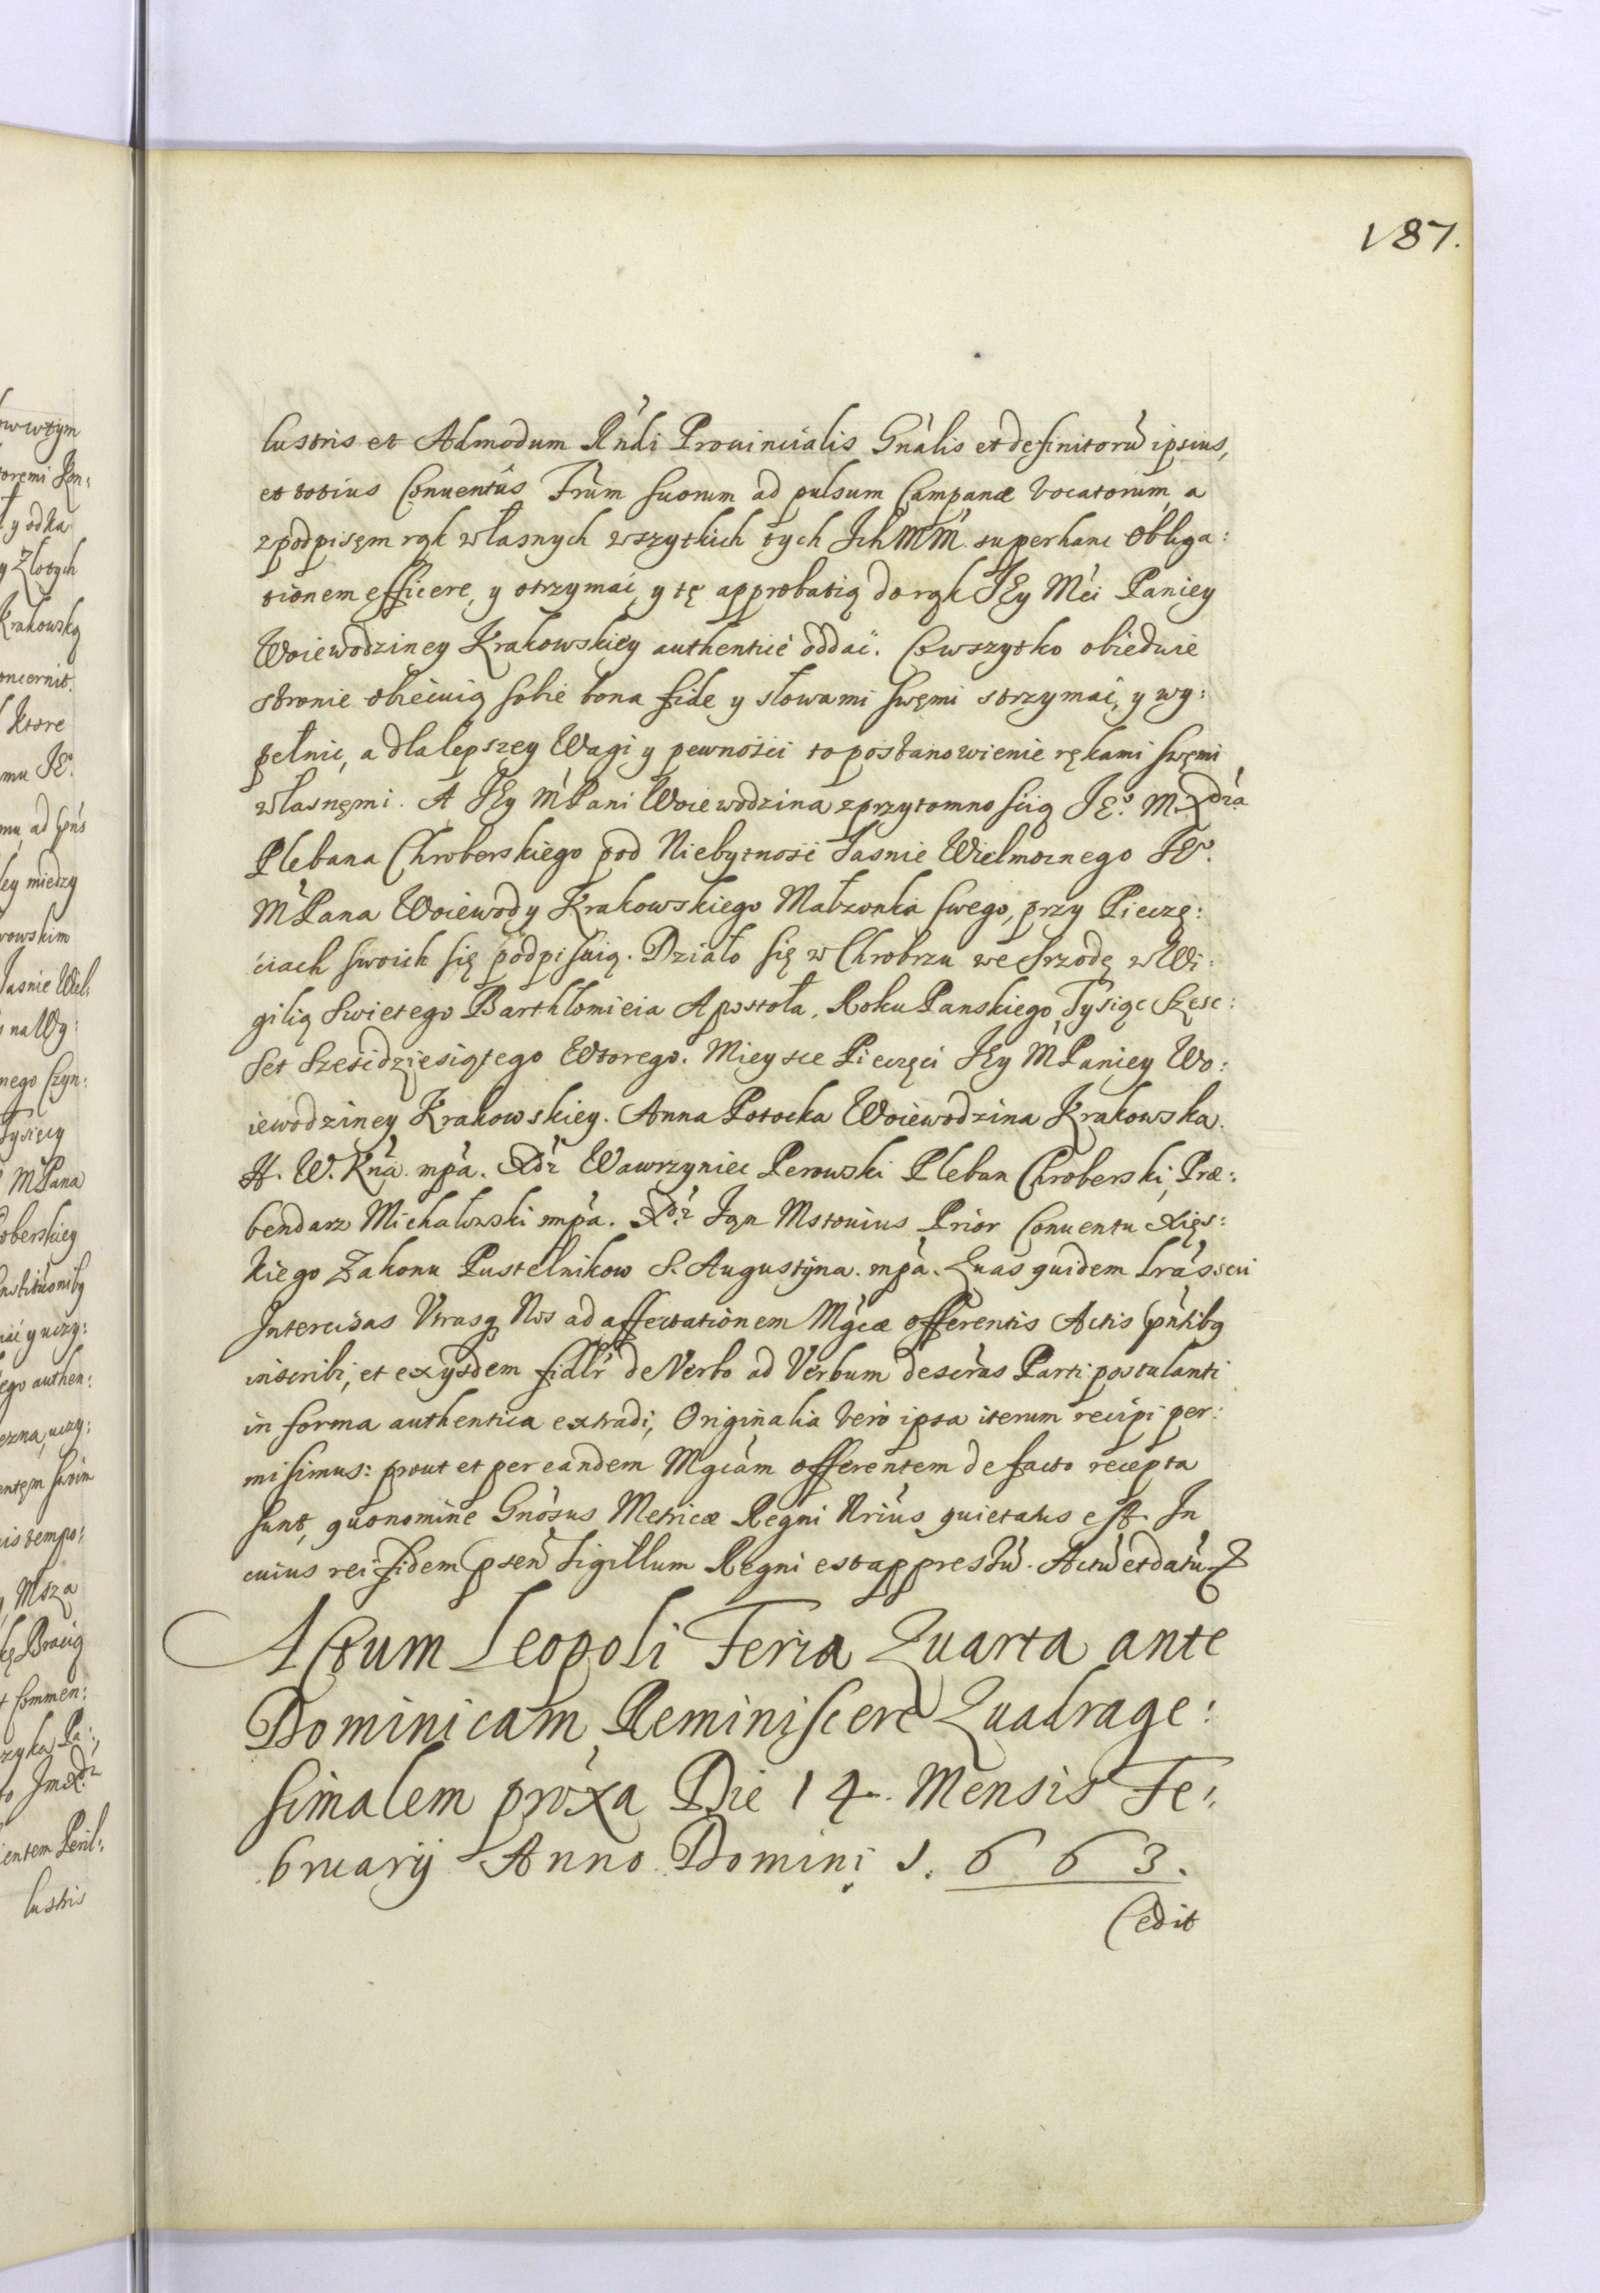 187.
lustris et Admodum Rńdi Prouincialis Gnàlis et definitorũ ipsius,
et totius Conuentûs Frũm suorum ad pulsum Campanæ vocatorum, a
z podpisęm rąk własnych wszytkich tych IchMM. super hanc Obliga:
tionem efficere, y otrzymać, y tę approbatią do rąk JEy Mći Paniey
Woiewodziney Krakowskiey authenticè oddać. Co wszytko obiedwie
stronie obiecuią sobie bona fide y słowami swęmi strzymać, y wy:
pełnić, a dla lepszey Wagi y pewnośći to postanowienie rękami swęmi
własnęmi. A JEy M Pani Woiewodzina z przytomnością JEº. M. Xdza
Plebana Chroberskiego pod Niebytność Jasnie Wielmoznego JEº.
M Pana Woiewody Krakowskiego Małzonka swego, przy Pieczę:
ćiach swoich się podpisuią. Działo się w Chrobrzu we Srzodę w Wi:
gilią Swietego Barthłomieia Apostoła, Roku Panskiego Tysiąc Szesc:
set Szescidziesiątego Wtorego. Mieysce Pieczęci JEy M Paniey Wo:
iewodziney Krakowskiey. Anna Potocka Woiewodzina Krakowska.
H. W. Kna. mpa. Xdz Wawrzyniec Perowski Pleban Chroberski, Præ:
bendarz Michałowski mpa. Xdz Jan Mstouius Prior Conuentu Xięs:
kiego Zakonu Pustelnikow S. Augustyna. mpa. Quas quidem Lràs seu
Intercisas Vtrasq Nos ad affectationem Mgcæ offerentis Actis pńtibq
inscribi, et ex ijsdem fidlr de Verbo ad Verbum descras Parti postulanti
in forma authentica extradi, Originalia vero ipsa iterum recipi per:
misimus: prout et per eandem Mgcam offerentem de facto recepta
sunt, quo nomine Gnosus Metricæ Regni Nrius quietatus est. In
cuius rei fidem pśen Sigillum Regni est appressũ. Actũ et datũ
Actum Leopoli Feria Quarta ante
Dominicam Reminiscere Quadrage:
simalem próxa Die 14. Mensis Fe:
bruarij Anno Domini 1. 6 6 3.
Cedit